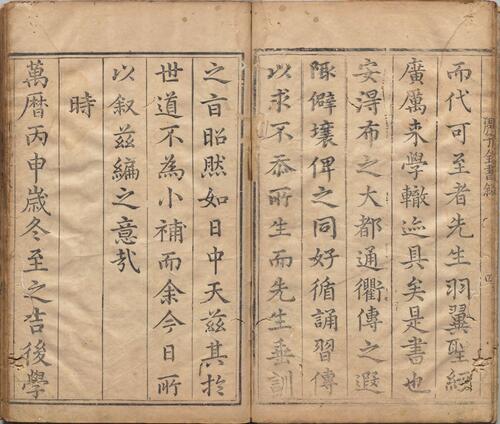 而代可至者先生羽翼聖經
廣厲来學轍迹具矣是書也
安淂布之大都通衢傳之遐
陬僻壤俾之同好循誦習傳
以求不忝所生而先生垂訓
之旨昭然如日中天兹其扵
世道不為小補而余今日所
以叙兹編之意㢤
時
萬曆丙申歲冬至之吉後學